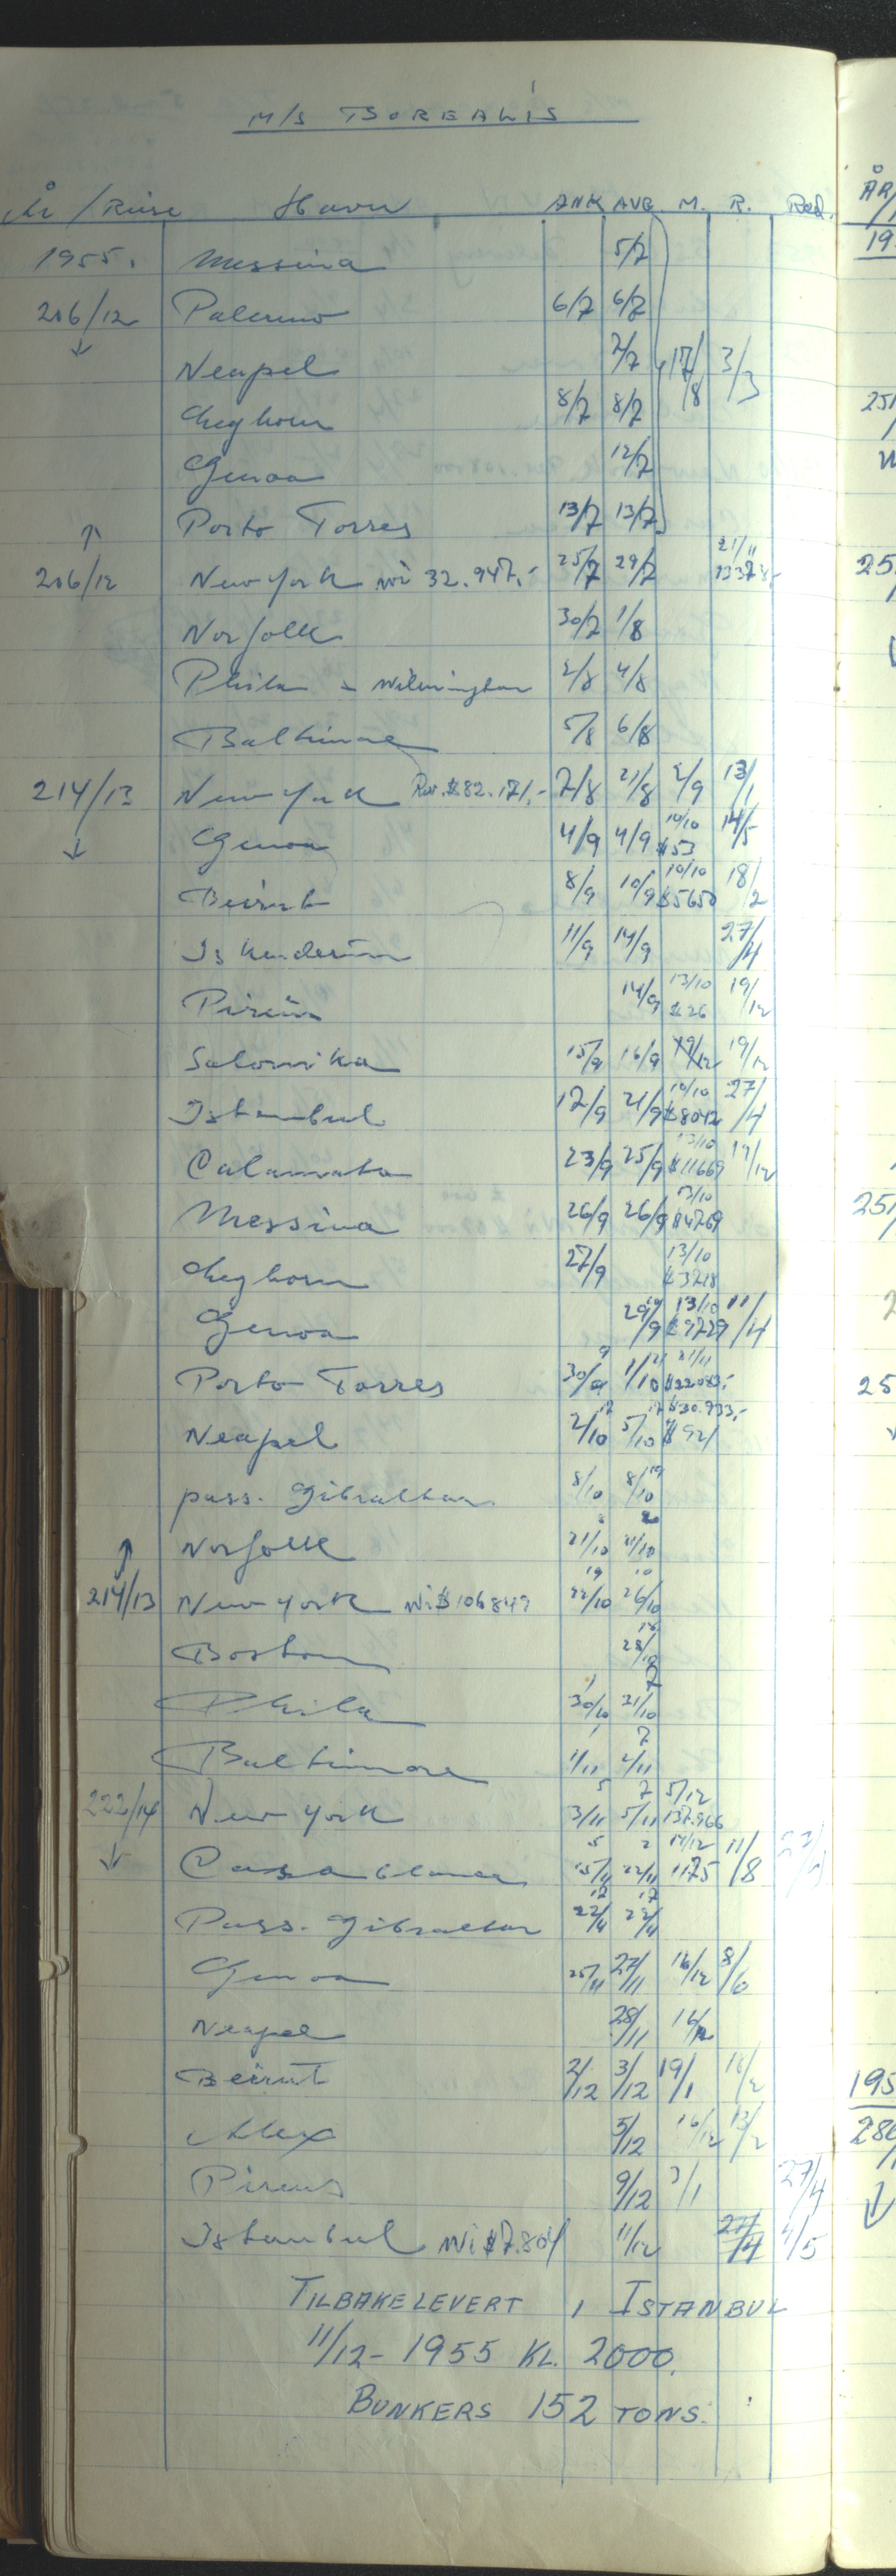 M/S BOREALIS
År / Reise Havn ANK AVG. M. R. Red.
1955. Messina 5/7
206/12 Palermo 6/7 6/7
↓ Neapel 7/7 17/8 3/3
Leghorn 8/7 8/7
Genoa 12/7
↑ Porto Torres 13/7 13/7
21/11
206/12 New York 32.947.- 25/7 29/7
Norfolk 30/7 1/8
Phila - Wilmington 2/8 4/8
Baltimore 5/8 6/8
214/13 New York $82.171.- 7/8 21/8 2/9 13/1
↓ Genoa 4/9 4/9 10/10 $53 14/5
Beirut 8/9 10/9 10/10 $5650 18/2
Iskenderun 11/9 14/9 27/4
Pireus 14/9 13/10 $26 19/12
Salonika 15/9 16/9 19/12 19/12
Istanbul 17/9 21/9 10/10 $8042 27/4
Calamata 23/9 25/9 13/10 $11669 19/12
Messina 26/9 26/9 13/10 $4769
Leghorn 27/9 13/10 $3218
Genoa 29/9 13/10 $9729 11/4
Porto Torres 30/9 1/10 21/11
$30.933,-
Neapel 2/10 5/10 $921
pass. Gibraltar 8/10 8/10
↑ Norfolk 21/10 21/10
214/13 New York $106849 22/10 26/10
Boston 28/10
Phila 30/10 31/10
Baltimore 1/11 2/11
222/14 New York 3/11 5/11 5/12 137.966
↓ Casablanca 15/11 22/11 14/12 1175 11/8
Pass. Gibraltar 22/11 22/11
Genoa 25/11 27/11 16/12 8/6
Neapel 28/11 16/12
Beirut 2/12 3/12 19/1 18/2
Alex 5/12 16/12 13/2
Pireus 9/12 3/1 27/4
Istanbul $7.804 11/12 27/4 4/5
TILBAKELEVERT I ISTANBUL
11/12 - 1955 KL. 2000.
BUNKERS 152 TONS.
ÅR/
19
251
25
251
25
195
286